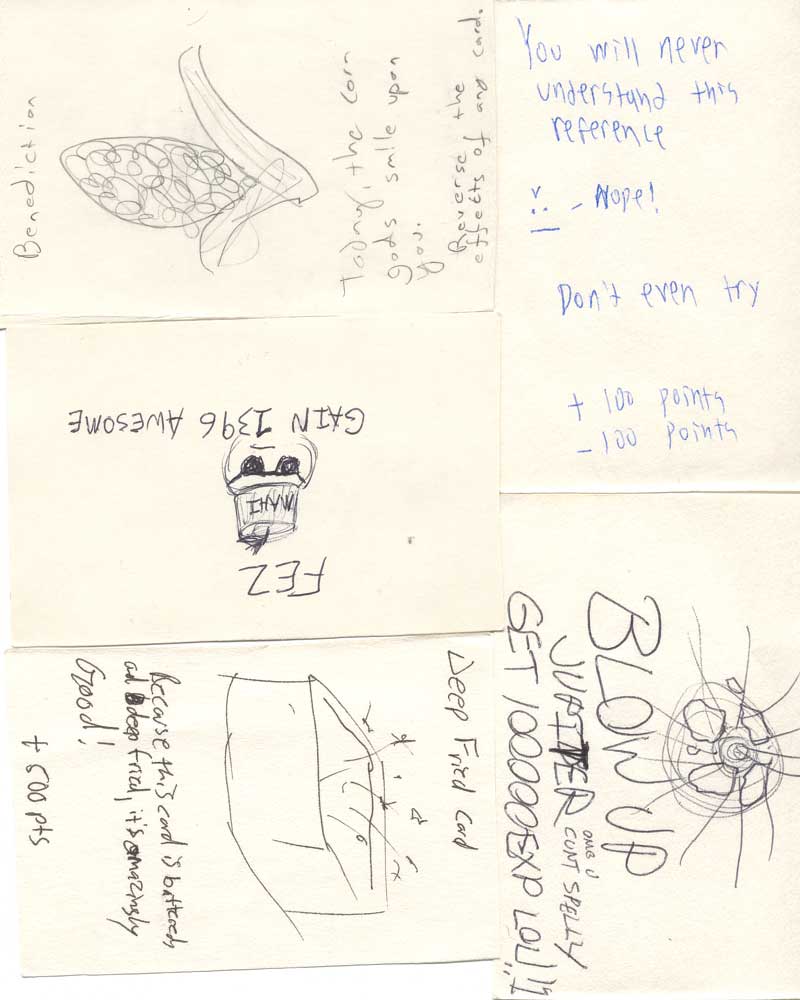 Benediction
Today, the corn
gods smile upon
you.
Reverse the
effects of any card.
You will never
understand this
reference
- Nope!
Don't even try
+ 100 points
- 100 points
FEZ
MAHI
GAIN 1396 AWESOME
Deep Fried Card
Because this card is battered,
and deep fried, it's amazingly
Good!
+ 500 pts
BLOW UP
JUPITER
OMG U
CUNT SPELLY
GET 100000EXP LOL!!